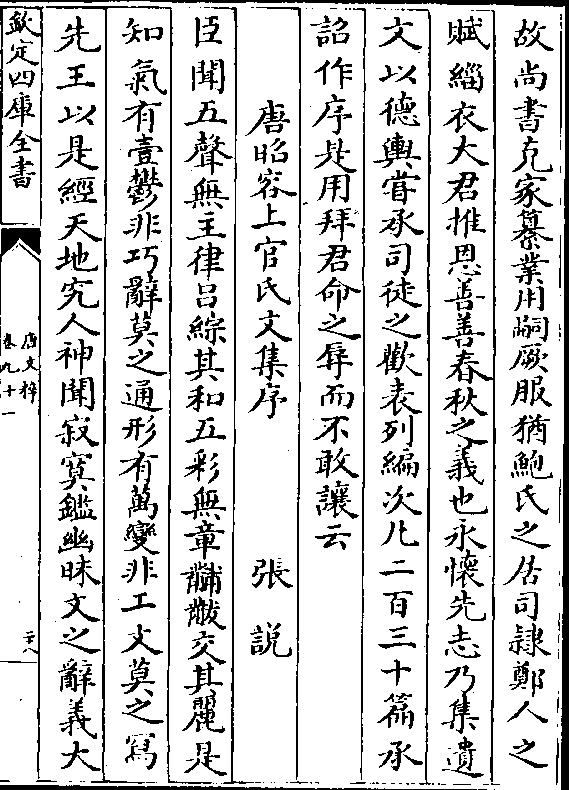 故尚書克家纂業用嗣厥服猶鮑氏之居司隷鄭人之
賦緇衣大君推恩善善春秋之義也永懷先志乃集遺
文以德輿甞承司徒之歡表列編次凡二百三十篇承
詔作序是用拜君命之辱而不敢讓云
唐昭容上官氏文集序 張説
臣聞五聲無主律呂綜其和五彩無章黼黻交其麗是
知氣有壹鬱非巧辭莫之通形有萬變非工文莫之寫
先王以是經天地究人神聞寂寞鑑幽昧文之辭義大
欽定四庫全書
唐文粹
卷九十一